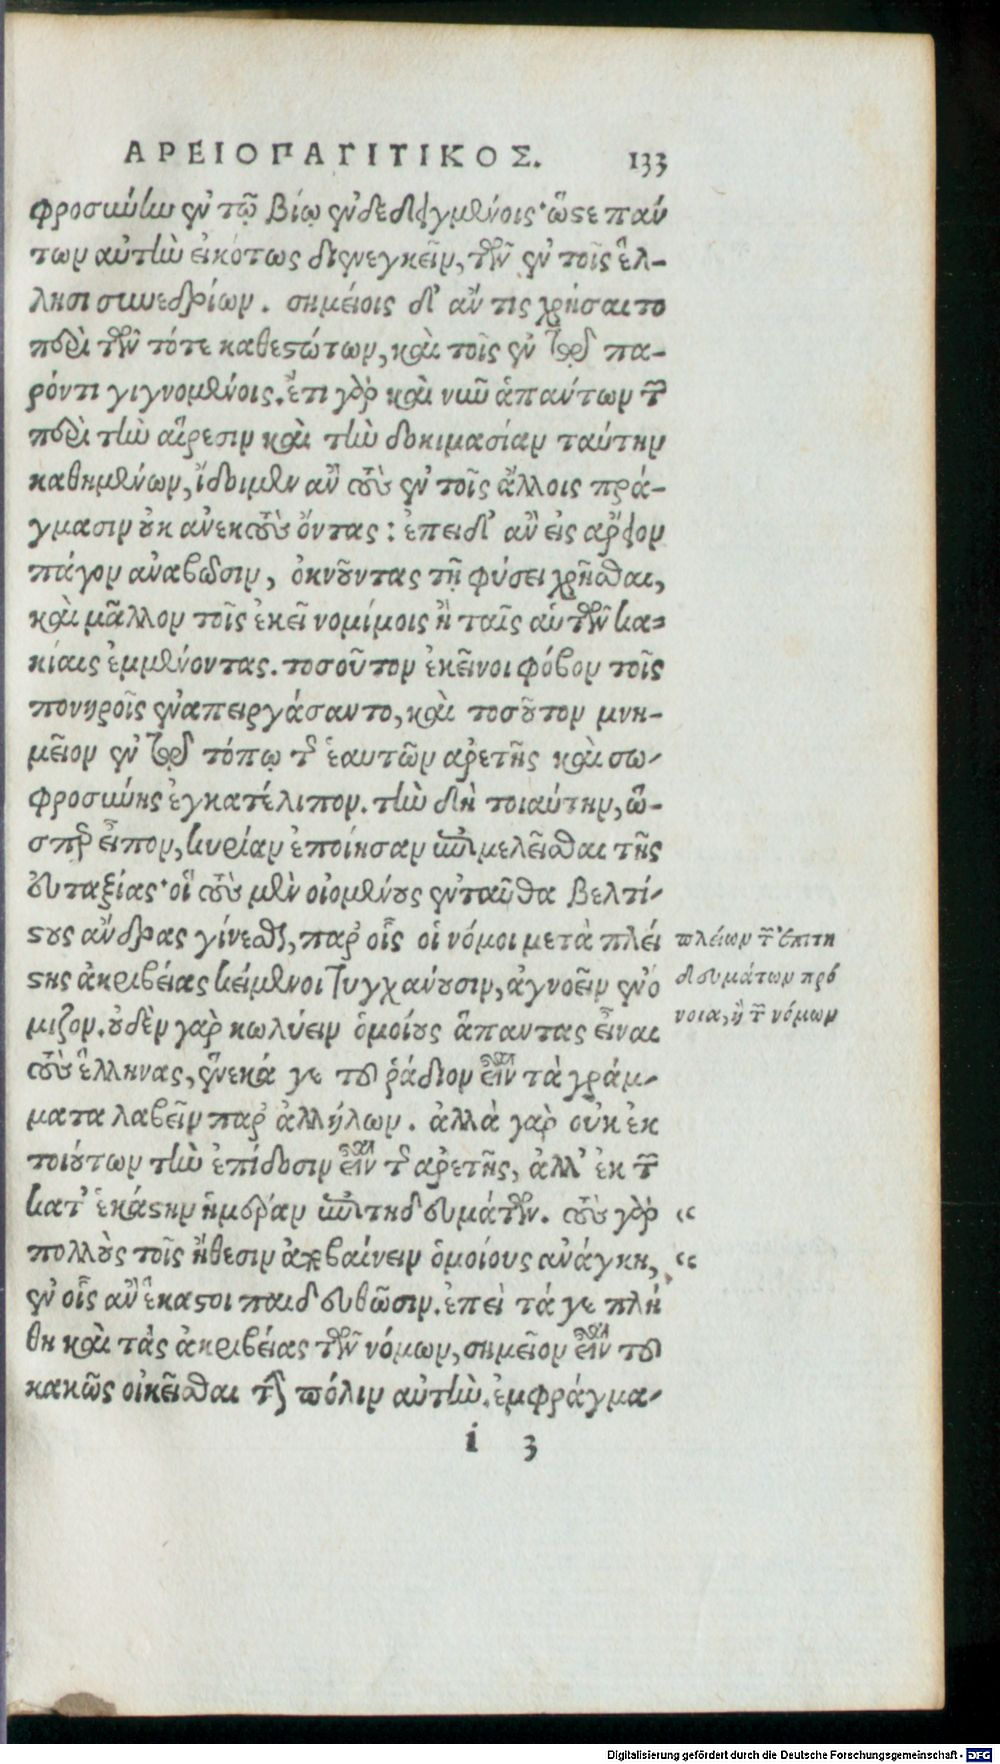 ΑΡΕΙΟΠΑΓΙΤΙΚΟΣ. 133
φροσύνην ἐν τῷ βίῳ ἐνδεδειγμένοις· ὥστε πάν
των αὐτὴν εἰκότως διενεγκεῖν, τῶν ἐν τοῖς ἕλ-
λησι συνεδρίων. σημείοις δ' ἄν τις χρήσαιτο
παρὰ τῶν τότε καθεστώτων, καὶ τοῖς ἐν τῷ πα-
ρόντι γιγνομένοις. ἔτι γὰρ καὶ νῦν ἁπάντων τῶν
περὶ τὴν αἵρεσιν καὶ τὴν δοκιμασίαν ταύτην
καθημένων, ἴδοιμεν ἂν τοὺς ἐν τοῖς ἄλλοις πρά-
γμασιν οὐκ ἀνεκτοὺς ὄντας: ἐπειδ' ἂν εἰς ἄρειον
πάγον ἀναβῶσιν, ὀκνοῦντας τῇ φύσει χρῆσθαι,
καὶ μᾶλλον τοῖς ἐκεῖ νομίμοις ἢ ταῖς αὑτῶν κα-
κίαις ἐμμένοντας. τοσοῦτον ἐκεῖνοι φόβον τοῖς
πονηροῖς ἐναπειργάσαντο, καὶ τοσοῦτον μνη-
μεῖον ἐν τῷ τόπῳ τῆς ἑαυτῶν ἀρετῆς καὶ σω-
φροσύνης ἐγκατέλιπον. τὴν δὴ τοιαύτην, ὥ-
σπερ εἶπον, κυρίαν ἐποίησαν ἐπιμελεῖσθαι τῆς
εὐταξίας· οἳ τοὺς μὲν οἰομένους ἐνταῦθα βελτί-
στους ἄνδρας γίνεσθαι, παρ' οἷς οἱ νόμοι μετὰ πλεί
στης ἀκριβείας κείμενοι τυγχάνουσιν, ἀγνοεῖν ἐνό
μιζον. οὐδὲν γὰρ κωλύειν ὁμοίους ἅπαντας εἶναι
τοὺς ἕλληνας, ἕνεκά γε τοῦ ῥάδιον εἶναι τὰ γράμ-
ματα λαβεῖν παρ' ἀλλήλων. ἀλλὰ γὰρ οὐκ ἐκ
τούτων τὴν ἐπίδοσιν εἶναι τῆς ἀρετῆς, ἀλλ' ἐκ τῶν
κατ' ἑκάστην ἡμέραν ἐπιτηδευμάτων. τοὺς γὰρ “
πολλοὺς τοῖς ἤθεσιν ἀποβαίνειν ὁμοίους ἀνάγκη, “
ἐν οἷς ἂν ἕκαστοι παιδευθῶσιν. ἐπεὶ τά γε πλή
θη καὶ τὰς ἀκριβείας τῶν νόμων, σημεῖον εἶναι τοῦ
κακῶς οἰκεῖσθαι τὴν πόλιν αὐτήν. ἐμφράγμα-
i 3
πλείων τῶν ἐπιτη
δευμάτων πρό
νοια, ἢ τῶν νόμων
Digitalisierung gefördert durch die Deutsche Forschungsgemeinschaft - DFG